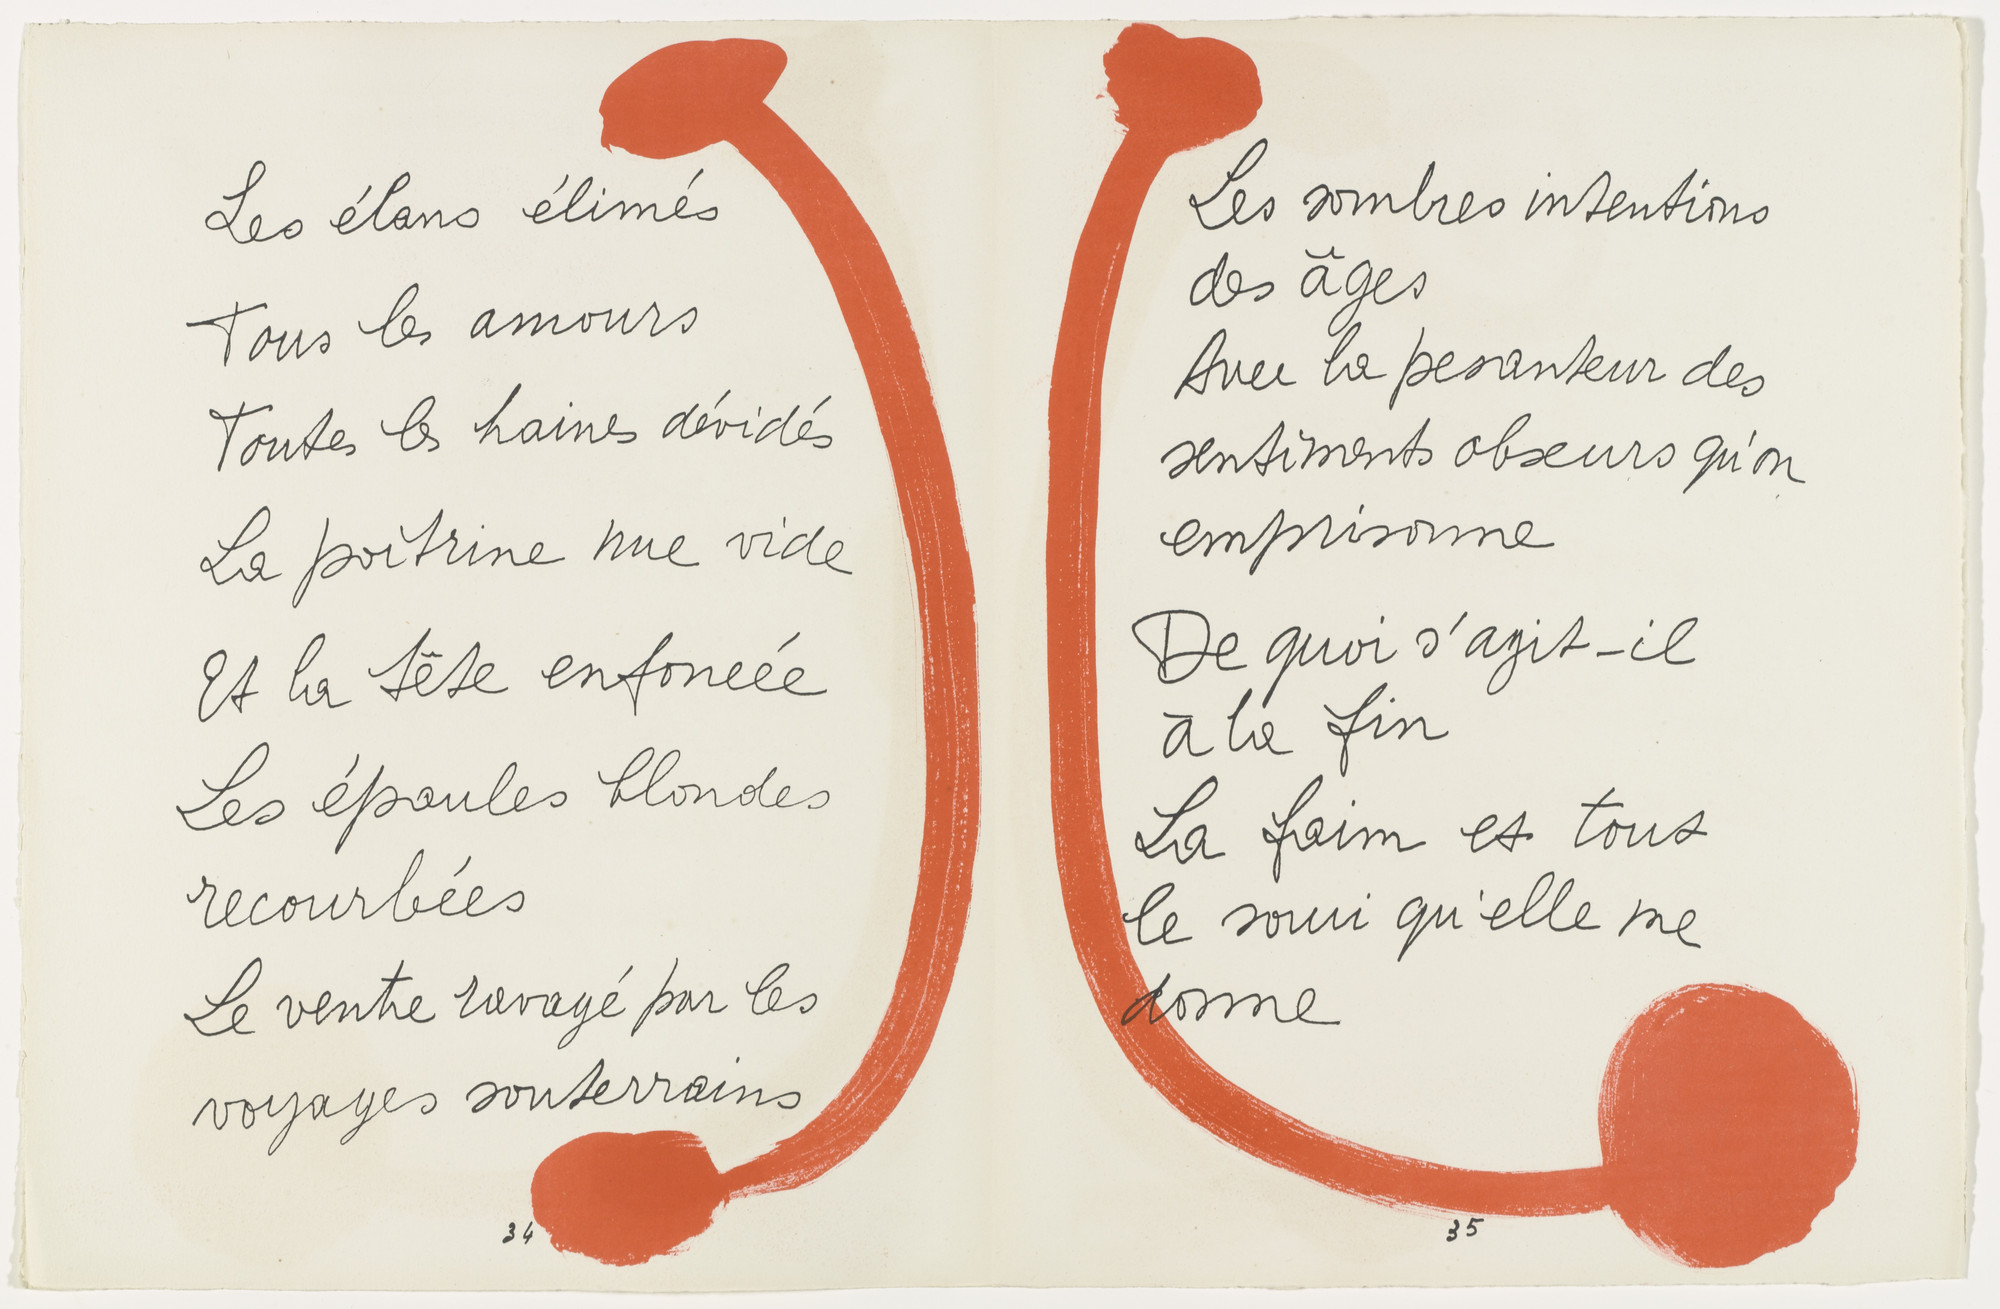 Les élans élimés
Tous les amours
Toutes les haines dévidés
La poitrine nue vide
Et la tête enfoncée
Les épaules blondes
recourbées
Le ventre ravagé par les
voyages souterrains
34
Les sombres intentions
des âges
Avec la pesanteur des
sentiments obscurs qu'on
emprisonne
De quoi s'agit-il
à la fin
La faim et tout
le souci qu'elle me
donne
35